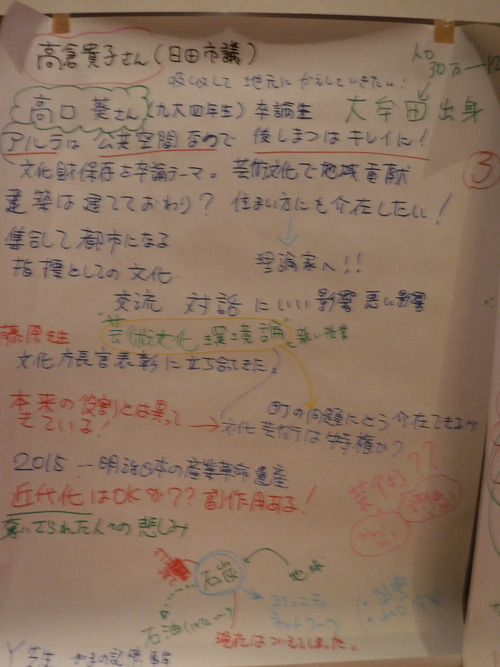 高倉貴子さん(日田市議)
吸収して 地元に かえしていきたい!
人口
30万→12
高口 葵さん(九大四年生)卒論生 大牟田出身
アルテは 公共空間 なので 後しまつは キレイに!
③
文化財保存を卒論テーマ。 芸術文化で地域貢献
建築は建てておわり? 住まい方にも介在したい!
集合して都市になる
指標としての文化
理論家へ!!
交流 対話 にいい影響 悪い影響
藤原先生
芸術文化環境論
文化庁長官表彰に立ち会えた。
本来の役割とは異って
きている!
町の問題にどう介在できるか
文化芸術は特権か?
2015 ー明治日本の産業革命遺産
近代化はOKか?? 副作用ある!
奪いさられた人への悲しみ
芸術??
石炭
地球
コミュニティ
ネットワーク
現在はついえてしまった。